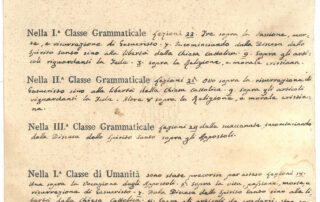 Nella I.ª Classe Grammaticale Lezioni 22. Tre sopra la Passione, mor-
te, e risurrezione di Gesucristo. 7. Incominciando dalla Discesa dello
Spirito Santo sino alla libertà della Chiesa Cattolica. 9. sopra gli arti-
coli riguardanti la Fede. 3. sopra la Religione, e morale cristiana.
Nella II.ª Classe Grammaticale Lezioni 25. Otto sopra la risurrezione di
Gesucristo sino alla libertà della Chiesa Cattolica. 9 sopra gli articoli
riguardanti la Fede. 8 sopra la Religione, e morale cristia-
na.
Nella III.ª Classe Grammaticale Lezioni 29 dalla incominciando
dalla Discesa dello Spirito Santo sopra gli
Apostoli.
Nella I.ª Classe di Umanità sono state percorse per esteso Lezioni
Una sopra la Vocazione degli Apostoli. sopra la vita, passione, morte, e
risurrezione di Gesucristo. Dalla Discesa dello Spirito Santo sino alla li-
bertà della Chiesa Cattolica